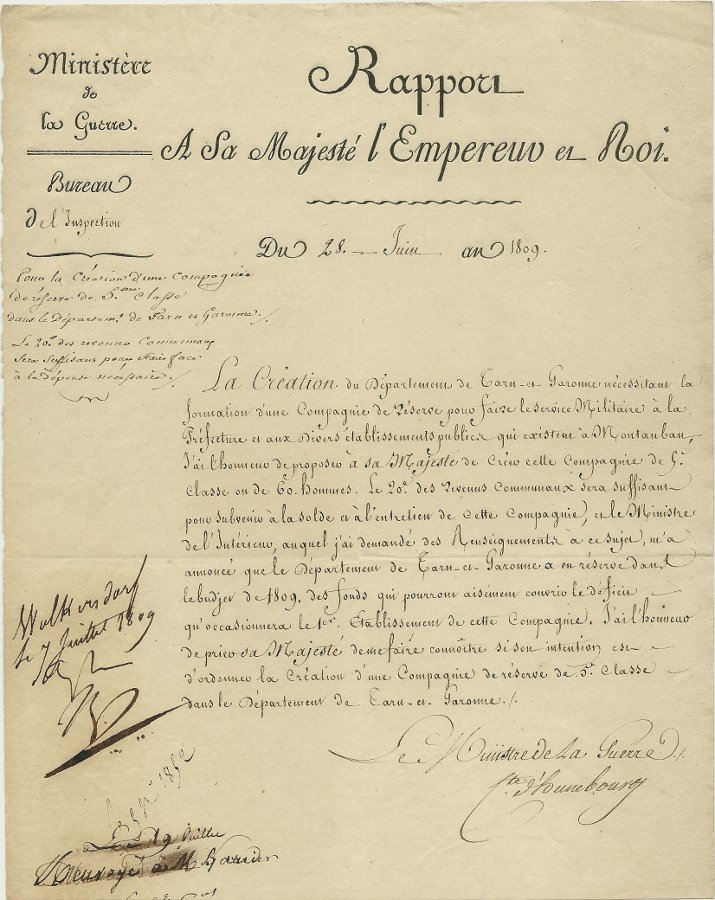 Ministère
de
la Guerre.
Bureau
de l'Inspection
Rapport
A Sa Majesté l'Empereur et Roi.
Du 28. Juin an 1809.
Pour la Création d'une Compagnie
de réserve de 5.eme Classe
dans le Départem.t de Tarn et Garonne /.
Le 20.e des revenus Communaux
sera suffisant pour faire face
à la dépense nécessaire /.
La Création du Département de Tarn-et-Garonne nécessitant la
formation d'une Compagnie de réserve pour faire le service Militaire à la
Préfecture et aux divers établissements publics qui existent à Montauban,
J'ai l'honneur de proposer à sa Majesté de Créer cette Compagnie de 5.e
Classe ou de 60. hommes. Le 20.e des revenus Communaux sera suffisant
pour subvenir à la solde et à l'entretien de cette Compagnie, et le Ministre
de l'Intérieur, auquel j'ai demandé des Renseignements à ce sujet, m'a
annoncé que le Département de Tarn-et-Garonne a en réserve dans
le budjet de 1809. des fonds qui pourront aisement couvrir le déficit
qu'occasionnera le 1.er Etablissement de cette Compagnie. J'ai l'honneur
de prier sa Majesté de me faire connoître si son intention est
d'ordonner la Création d'une Compagnie de réserve de 5.e Classe
dans le Département de Tarn-et-Garonne /.
Le Ministre de la Guerre /.
C.te d'hunebourg
Wolkersdorf
le 7 Juillet 1809
Le 19 Juillet
Renvoyé à M.